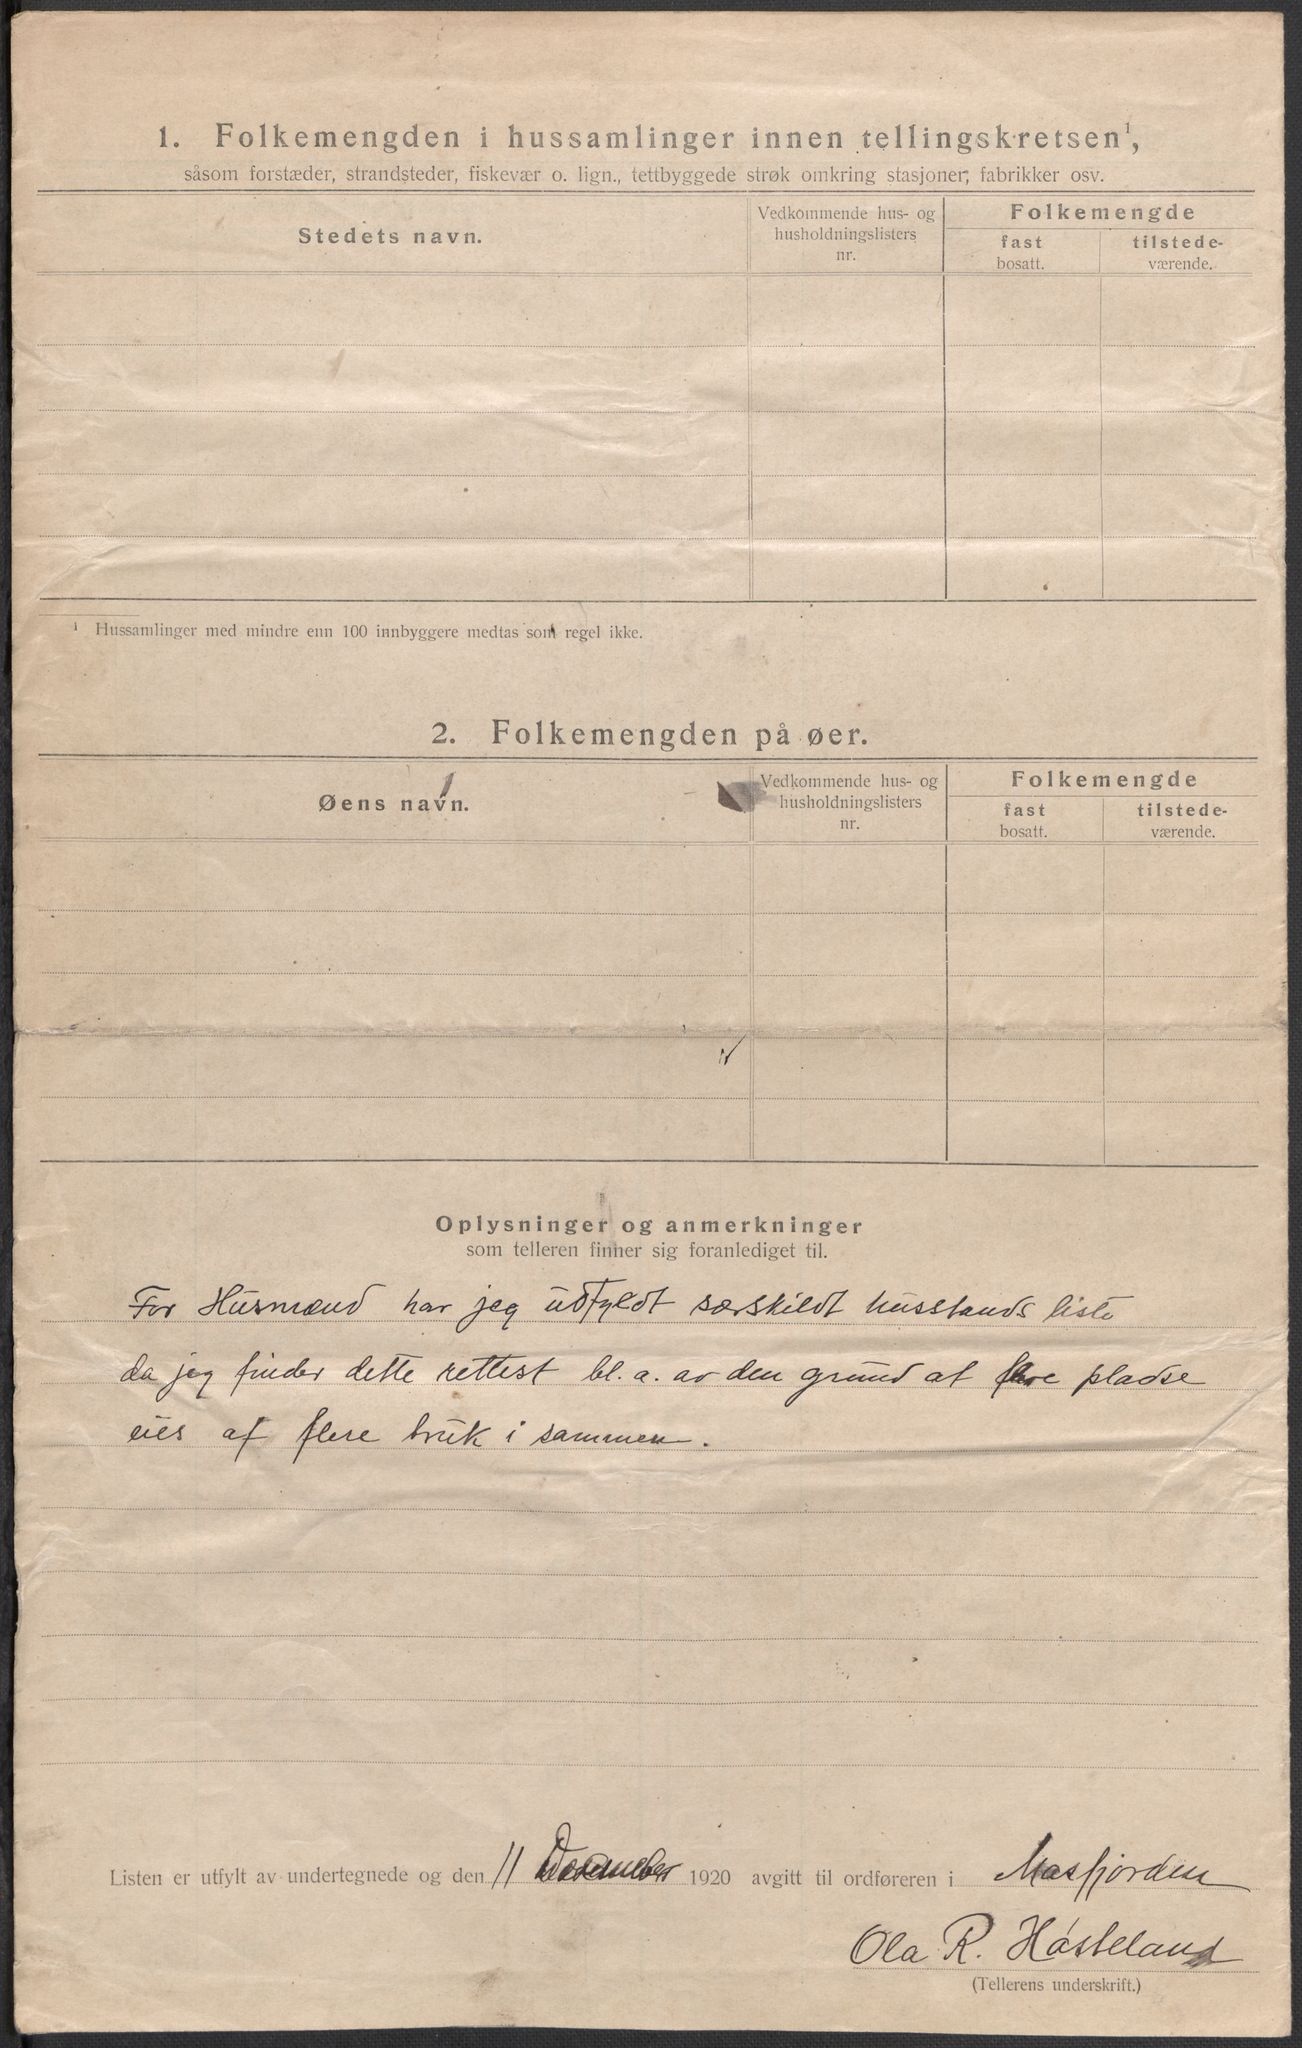 1. Folkemengden i hussamlinger innen tellingskretsen¹,
såsom forstæder, strandsteder, fiskevær o. lign., tettbyggede strøk omkring stasjoner, fabrikker osv.
Stedets navn.
Vedkommende hus- og
husholdningslisters
nr.
Folkemengde
fast
bosatt.
tilstede-
værende.
¹ Hussamlinger med mindre enn 100 innbyggere medtas som regel ikke.
2. Folkemengden på øer.
Øens navn.
Vedkommende hus- og
husholdningslisters
nr.
Folkemengde
fast
bosatt.
tilstede-
værende.
Oplysninger og anmerkninger
som telleren finner sig foranlediget til.
For Husmænd har jeg udfyldt særskildt husstands liste
da jeg finder dette rettest bl. a. av den grund at flere pladse
eies af flere bruk i sammen.
Listen er utfylt av undertegnede og den 11 December 1920 avgitt til ordføreren i Masfjorden
Ola R. Høsteland
(Tellerens underskrift.)